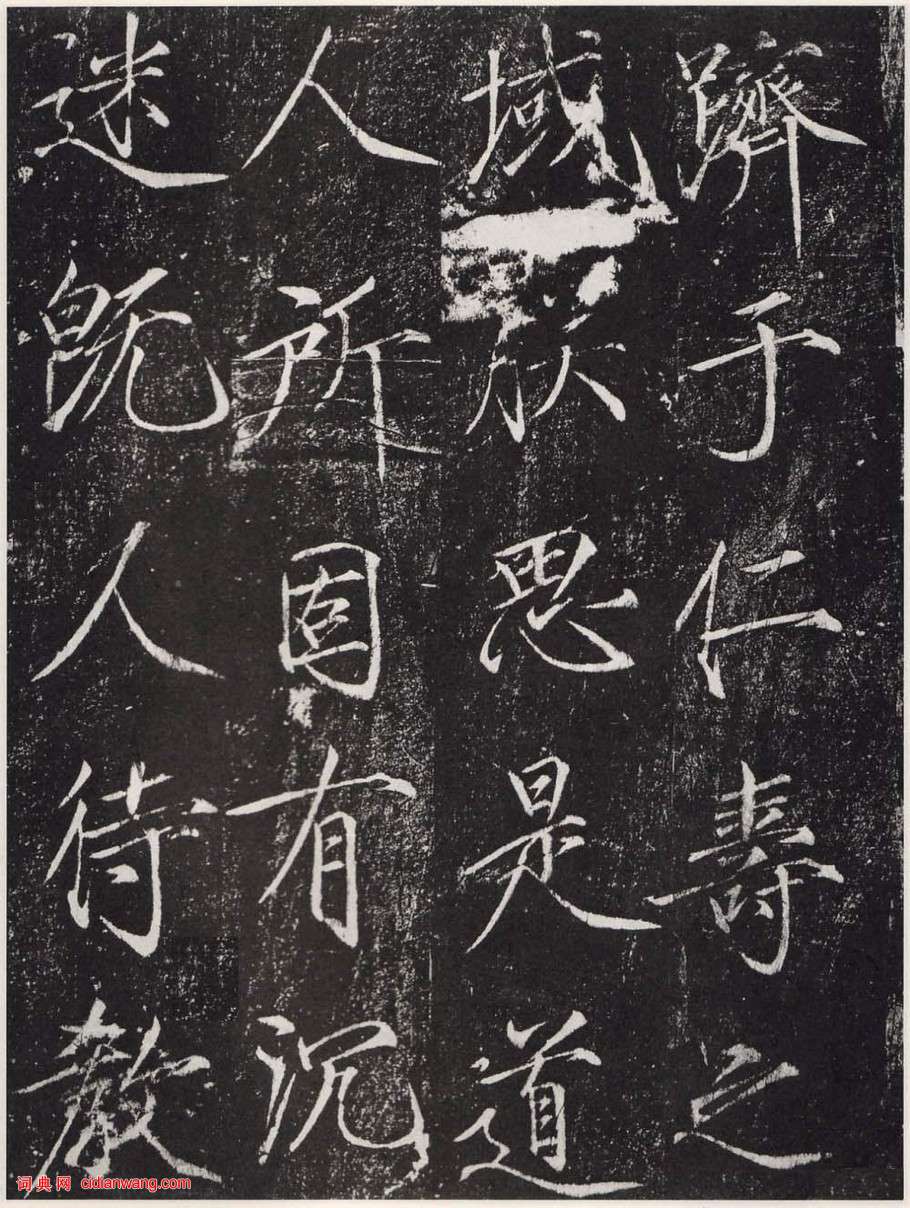 隮于仁壽之
域朕思是道
人所固有沉
迷既人待教
词典网 cidianwang.com